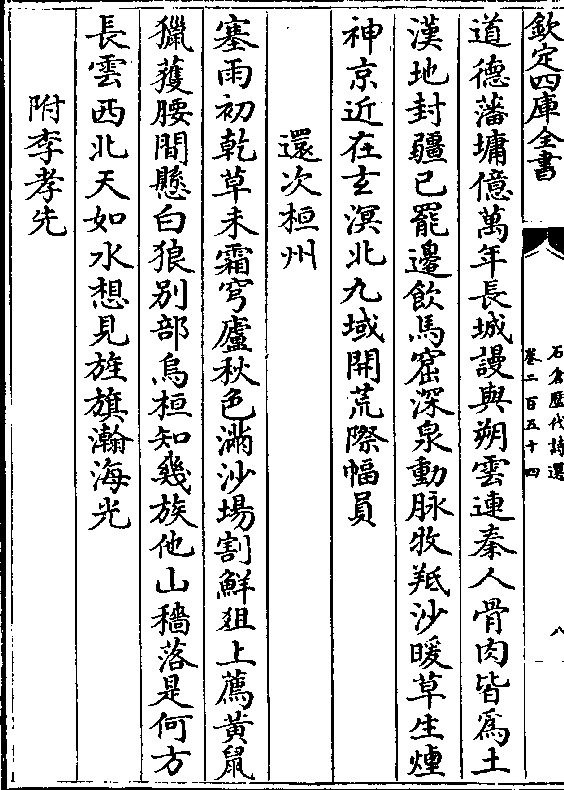 欽定四庫全書
石倉歷代詩選
卷二百五十四
八
道德藩墉億萬年長城謾與朔雲連秦人骨肉皆為土
漢地封疆已罷邊飲馬窟深泉動脉牧羝沙暖草生煙
神京近在玄溟北九域開荒際幅員
還次桓州
塞雨初乾草未霜穹廬秋色滿沙場割鮮俎上薦黃鼠
獵獲腰間懸白狼别部烏桓知幾族他山穡落是何方
長雲西北天如水想見旌旗瀚海光
附李孝先